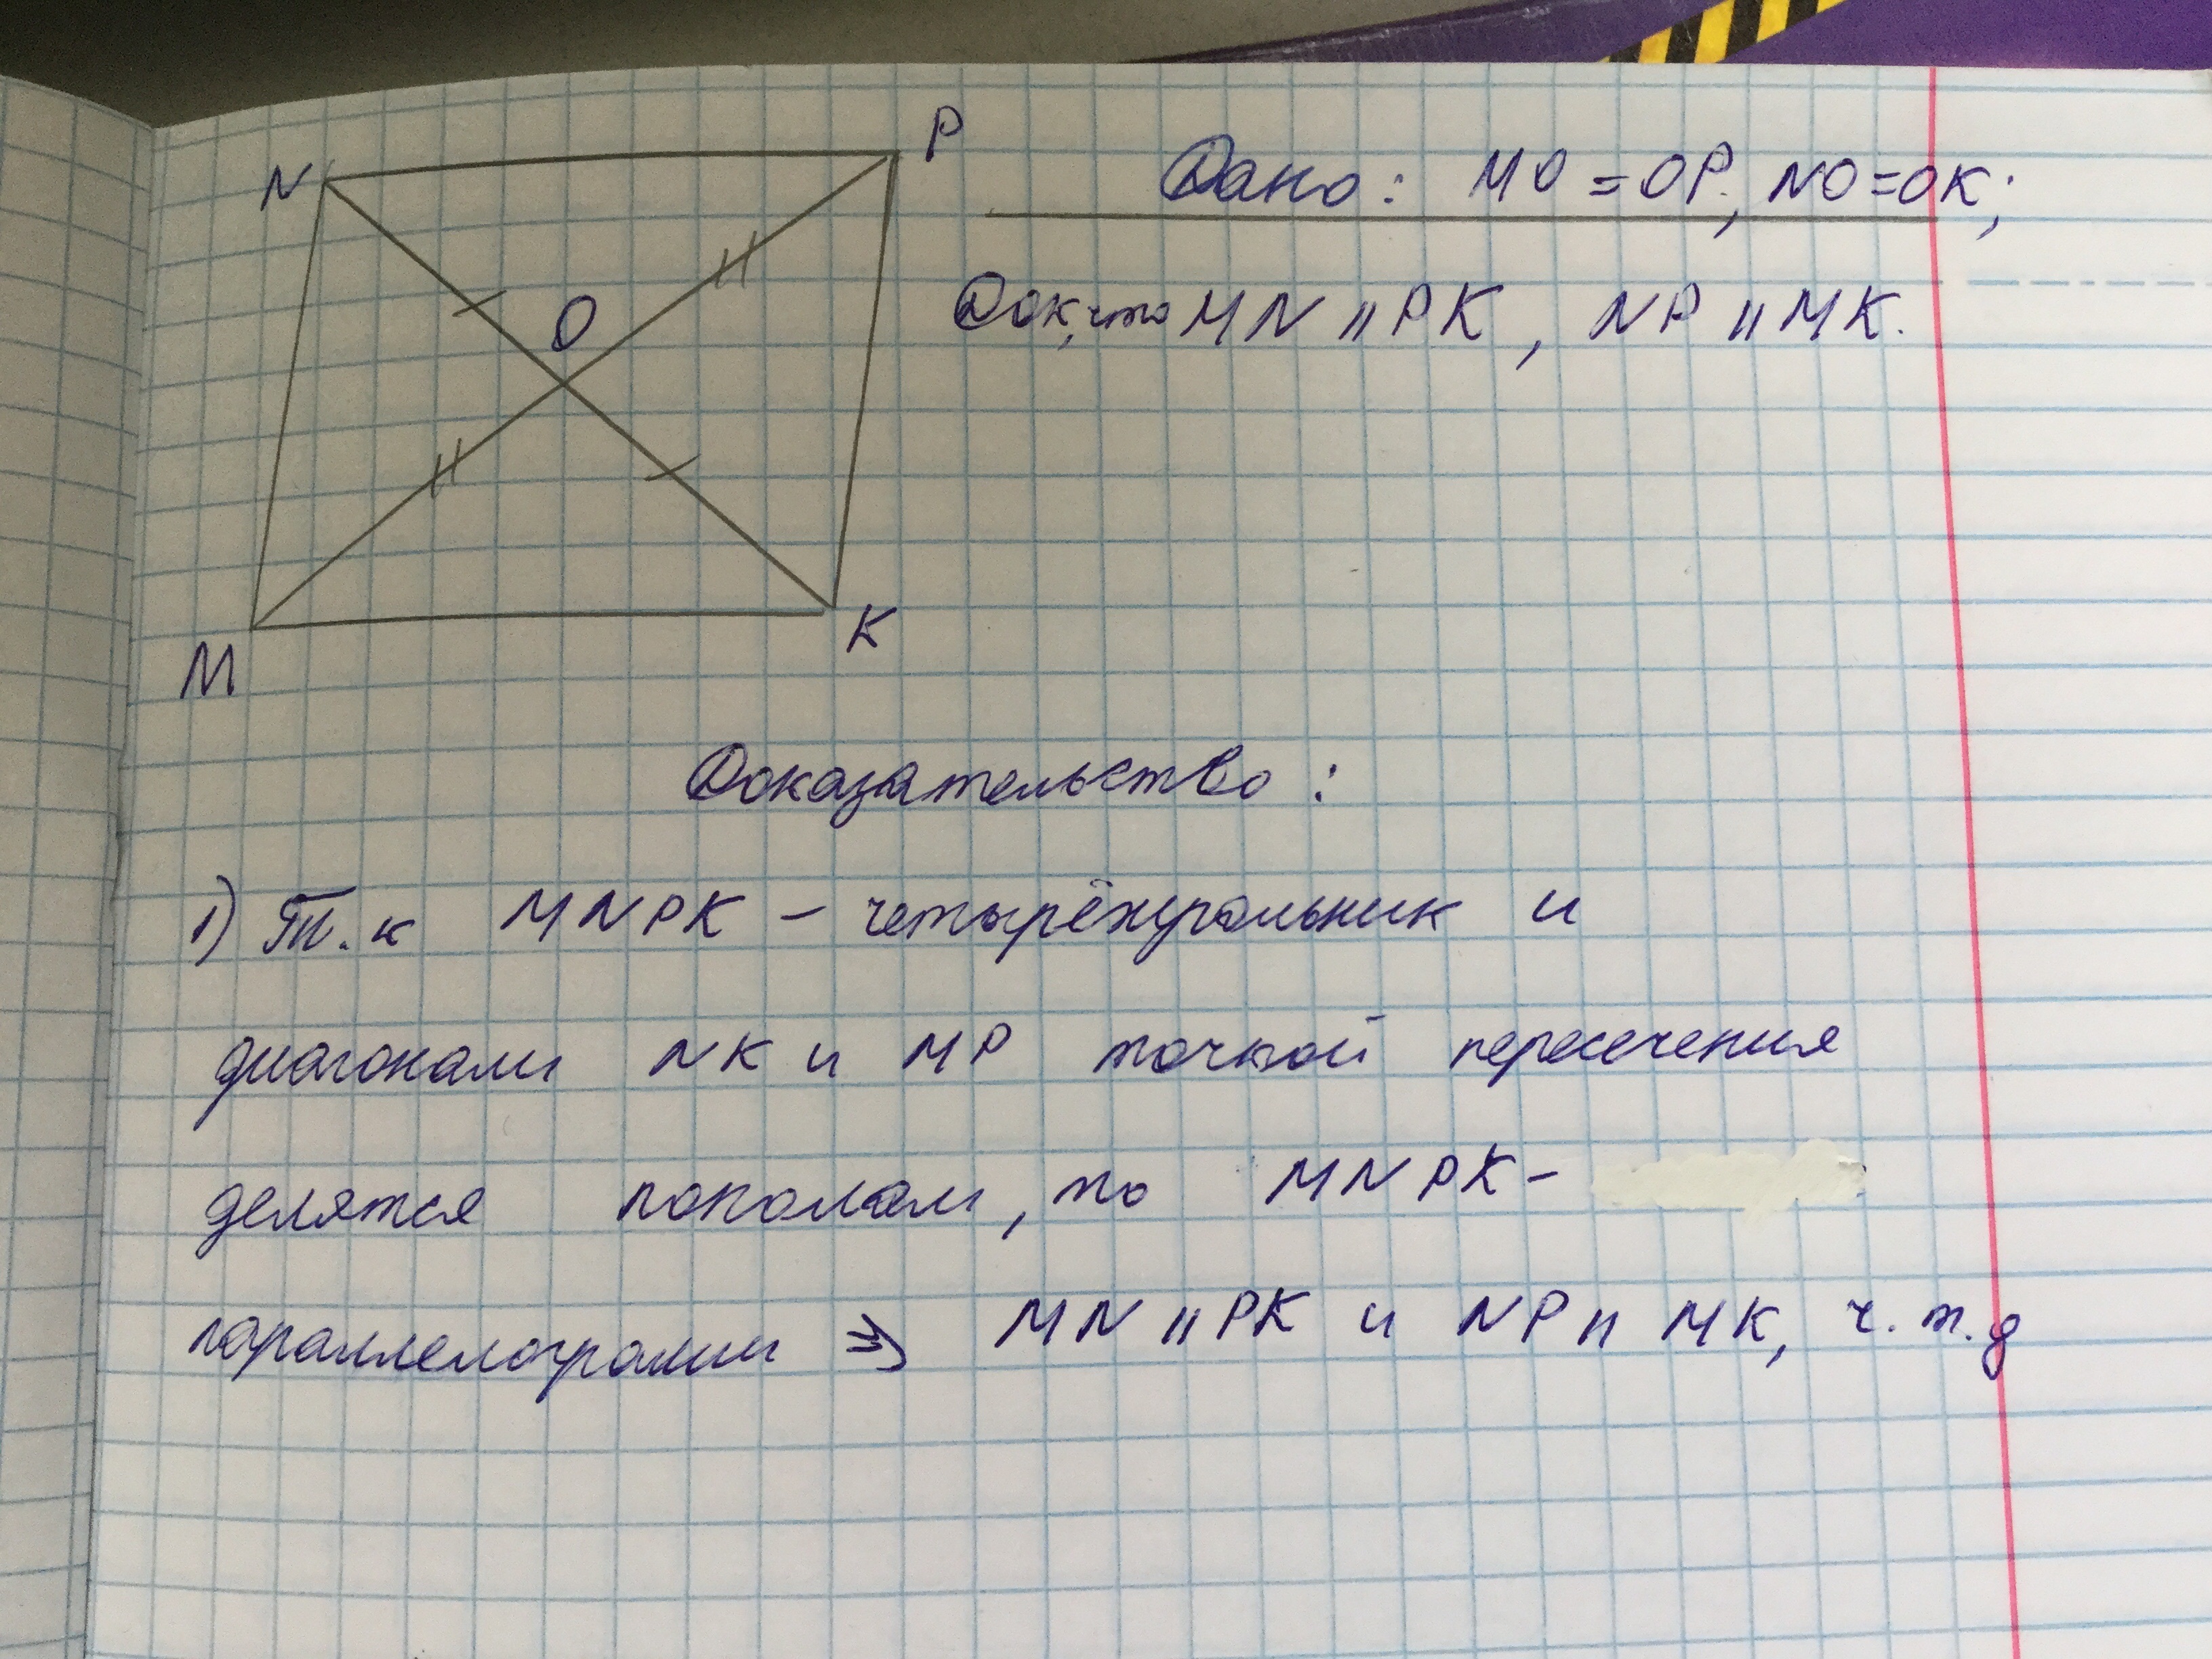 N
P
O
M
K
Дано: MO = OP, NO = OK;
Док, что MN || PK, NP || MK.
Доказательство:
1) Т.к MNPK – четырёхугольник и
диагонали NK и MP точкой пересечения
делятся пополам, то MNPK –
параллелограмм ⇒ MN || PK и NP || MK, ч.т.д